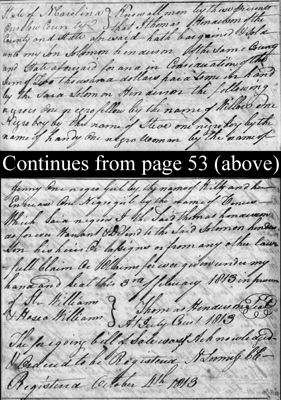 State of N Carolina } Know all men by these presents
Onslow County } that I Thomas Henderson of the
County and State aforesaid hath bargained & Sold
unto my son Solomon Henderson of the Same County
and State aforesaid for and in Consideration of the
Sum of Two thousand dollars paid to me in hand
by the Said Solomon Henderson the following
negroes One negro fellow by the name of one
Negro boy by the name of Steve one negro boy by the
name of Handy one negro woman by the name of
Continues from page 53 (above)
one negro girl by the name of Kitty and her
Increase One Negro girl by the name of Venus
Which Said negroes I the Said Thomas Henderson
do forever Warrant & Defend to the Said Solomon Hender
son his heirs Or assigns or from any other law
full Claim Or Claims forever given under my
hand and Seal this 3rd of february 1813 in presence
of Williams } Thomas Henderson Seal
Williams } July Court 1813
The foregoing bill of Sale was acknowledged
& Ordered to be Registered
Registered October 4th 1813